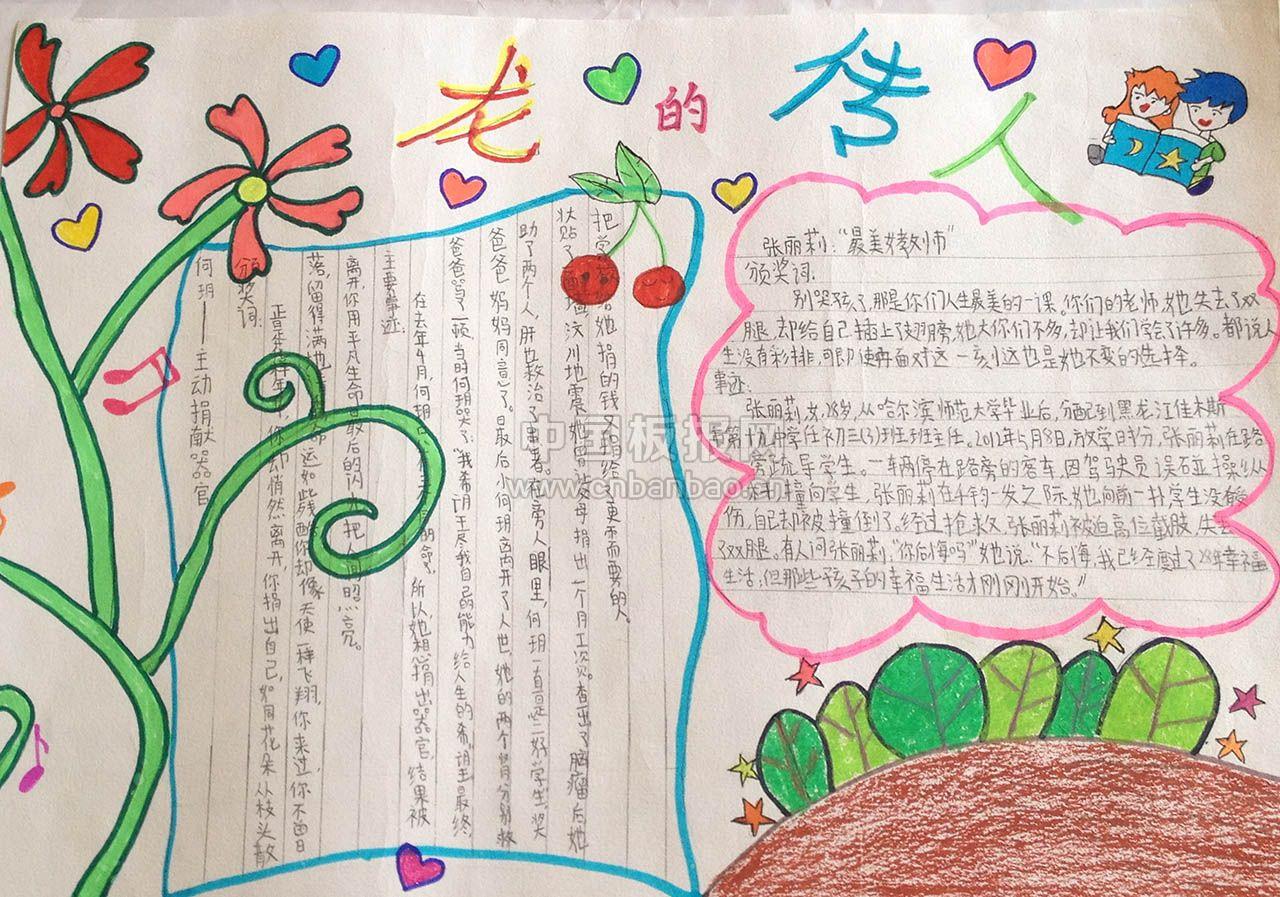 龙的传人
何玥——主动捐献器官
颁奖词:
正是年,你却悄然离开,你捐出自己,如同花朵从枝头散
落,留得满地运如此残酷你却像天使一样飞翔,你来过,你不曾
离开,你用平凡生命最后的闪把人间照亮。
主要事迹:
在去年4月,何玥的命。所以她想捐出器官,结果被
爸爸骂了一顿,当时何玥哭了:"我希望尽我自己的能力,给人生的希望最终
爸爸妈妈同意了。最后小何玥离开了人世,她的两个肾分别救
助了两个人,肝也救治了患者。在旁人眼里,何玥一直是三好学生,奖
状贴了墙汶川地震她曾父母捐出一个月工资。查出了脑瘤后她
把学给她捐的钱又捐给了更需要的人。
张丽莉:"最美女教师"
颁奖词:
别哭孩子,那是你们人生最美的一课。你们的老师,她失去了双
腿,却给自己插上了翅膀,她大你们不多,却让我们学会了许多。都说人
生没有彩排,可即使再面对这一刻,这也是她不变的选择。
事迹:
张丽莉,女,28岁,从哈尔滨师范大学毕业后,分配到黑龙江佳木斯
市第十九中学任初三(3)班班主任。2012年5月8日,放学时分,张丽莉在路
旁疏导学生。一辆停在路旁的客车,因驾驶员误碰操纵
杆撞向学生,张丽莉在千钧一发之际,她向前一扑学生没受
伤,自己却被撞倒了。经过抢救,张丽莉被迫高位截肢,失去
了双腿。有人问张丽莉:"你后悔吗"她说:"不后悔,我已经度过了28年幸福
生活,但那些孩子的幸福生活才刚刚开始。"
中国板报网
www.cnbanbao.cn